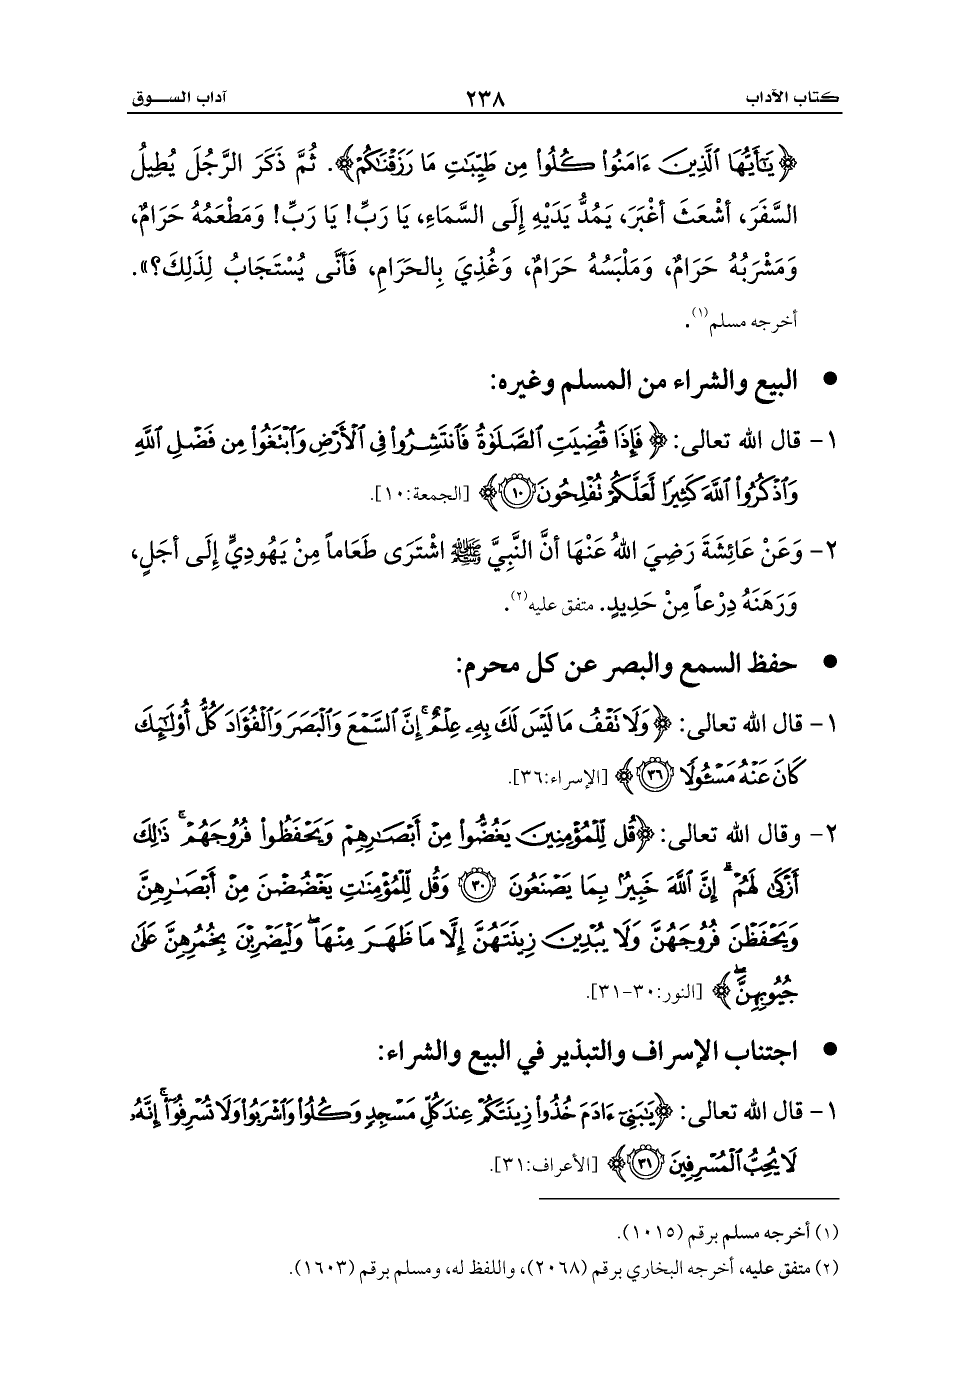 كتاب الآداب ٢٣٨ آداب الســـوق
﴿يَٰٓأَيُّهَا ٱلَّذِينَ ءَامَنُوا۟ كُلُوا۟ مِن طَيِّبَٰتِ مَا رَزَقْنَٰكُمْ﴾. ثُمَّ ذَكَرَ الرَّجُلَ يُطِيلُ
السَّفَرَ، أشْعَثَ أغْبَرَ، يَمُدُّ يَدَيْهِ إِلَى السَّمَاءِ، يَا رَبِّ! يَا رَبِّ! وَمَطْعَمُهُ حَرَامٌ،
وَمَشْرَبُهُ حَرَامٌ، وَمَلْبَسُهُ حَرَامٌ، وَغُذِيَ بِالحَرَامِ، فَأنَّى يُسْتَجَابُ لِذَلِكَ؟».
أخرجه مسلم(١).
● البيع والشراء من المسلم وغيره:
١- قال الله تعالى: ﴿فَإِذَا قُضِيَتِ ٱلصَّلَوٰةُ فَٱنتَشِرُوا۟ فِى ٱلْأَرْضِ وَٱبْتَغُوا۟ مِن فَضْلِ ٱللَّهِ
وَٱذْكُرُوا۟ ٱللَّهَ كَثِيرًا لَّعَلَّكُمْ تُفْلِحُونَ ١٠﴾ [الجمعة:١٠].
٢- وَعَنْ عَائِشَةَ رَضِيَ اللهُ عَنْهَا أنَّ النَّبِيَّ ﷺ اشْتَرَى طَعَاماً مِنْ يَهُودِيٍّ إِلَى أجَلٍ،
وَرَهَنَهُ دِرْعاً مِنْ حَدِيدٍ. متفق عليه(٢).
● حفظ السمع والبصر عن كل محرم:
١- قال الله تعالى: ﴿وَلَا تَقْفُ مَا لَيْسَ لَكَ بِهِۦ عِلْمٌ ۚ إِنَّ ٱلسَّمْعَ وَٱلْبَصَرَ وَٱلْفُؤَادَ كُلُّ أُو۟لَٰٓئِكَ
كَانَ عَنْهُ مَسْـُٔولًا ٣٦﴾ [الإسراء:٣٦].
٢- وقال الله تعالى: ﴿قُل لِّلْمُؤْمِنِينَ يَغُضُّوا۟ مِنْ أَبْصَٰرِهِمْ وَيَحْفَظُوا۟ فُرُوجَهُمْ ۚ ذَٰلِكَ
أَزْكَىٰ لَهُمْ ۗ إِنَّ ٱللَّهَ خَبِيرٌۢ بِمَا يَصْنَعُونَ ٣٠ وَقُل لِّلْمُؤْمِنَٰتِ يَغْضُضْنَ مِنْ أَبْصَٰرِهِنَّ
وَيَحْفَظْنَ فُرُوجَهُنَّ وَلَا يُبْدِينَ زِينَتَهُنَّ إِلَّا مَا ظَهَرَ مِنْهَا ۖ وَلْيَضْرِبْنَ بِخُمُرِهِنَّ عَلَىٰ
جُيُوبِهِنَّ ۖ﴾ [النور:٣٠-٣١].
● اجتناب الإسراف والتبذير في البيع والشراء:
١- قال الله تعالى: ﴿يَٰبَنِىٓ ءَادَمَ خُذُوا۟ زِينَتَكُمْ عِندَ كُلِّ مَسْجِدٍ وَكُلُوا۟ وَٱشْرَبُوا۟ وَلَا تُسْرِفُوٓا۟ ۚ إِنَّهُۥ
لَا يُحِبُّ ٱلْمُسْرِفِينَ ٣١﴾ [الأعراف:٣١].
(١) أخرجه مسلم برقم (١٠١٥).
(٢) متفق عليه، أخرجه البخاري برقم (٢٠٦٨)، واللفظ له، ومسلم برقم (١٦٠٣).